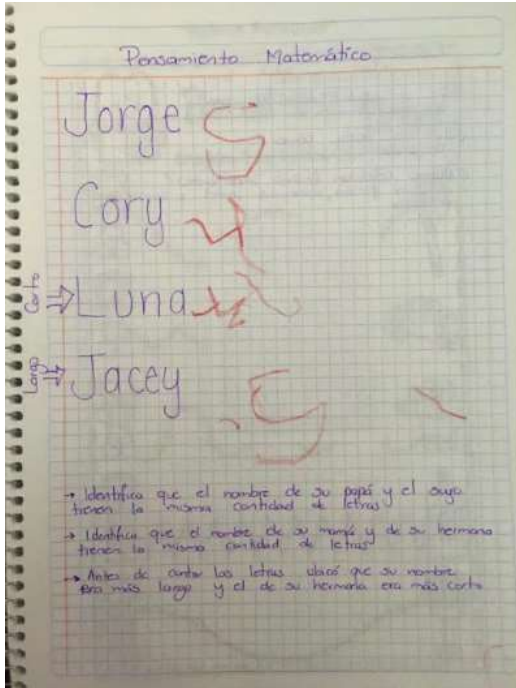 Pensamiento Matemático
Jorge 5
Cory 4
Corto ⇒ Luna 4
Largo ⇒ Jacey 5
→ Identifica que el nombre de su papá y el suyo
tienen la misma cantidad de letras
→ Identifica que el nombre de su mamá y de su hermana
tienen la misma cantidad de letras
→ Antes de contar las letras ubicó que su nombre
era más largo y el de su hermana era más corto